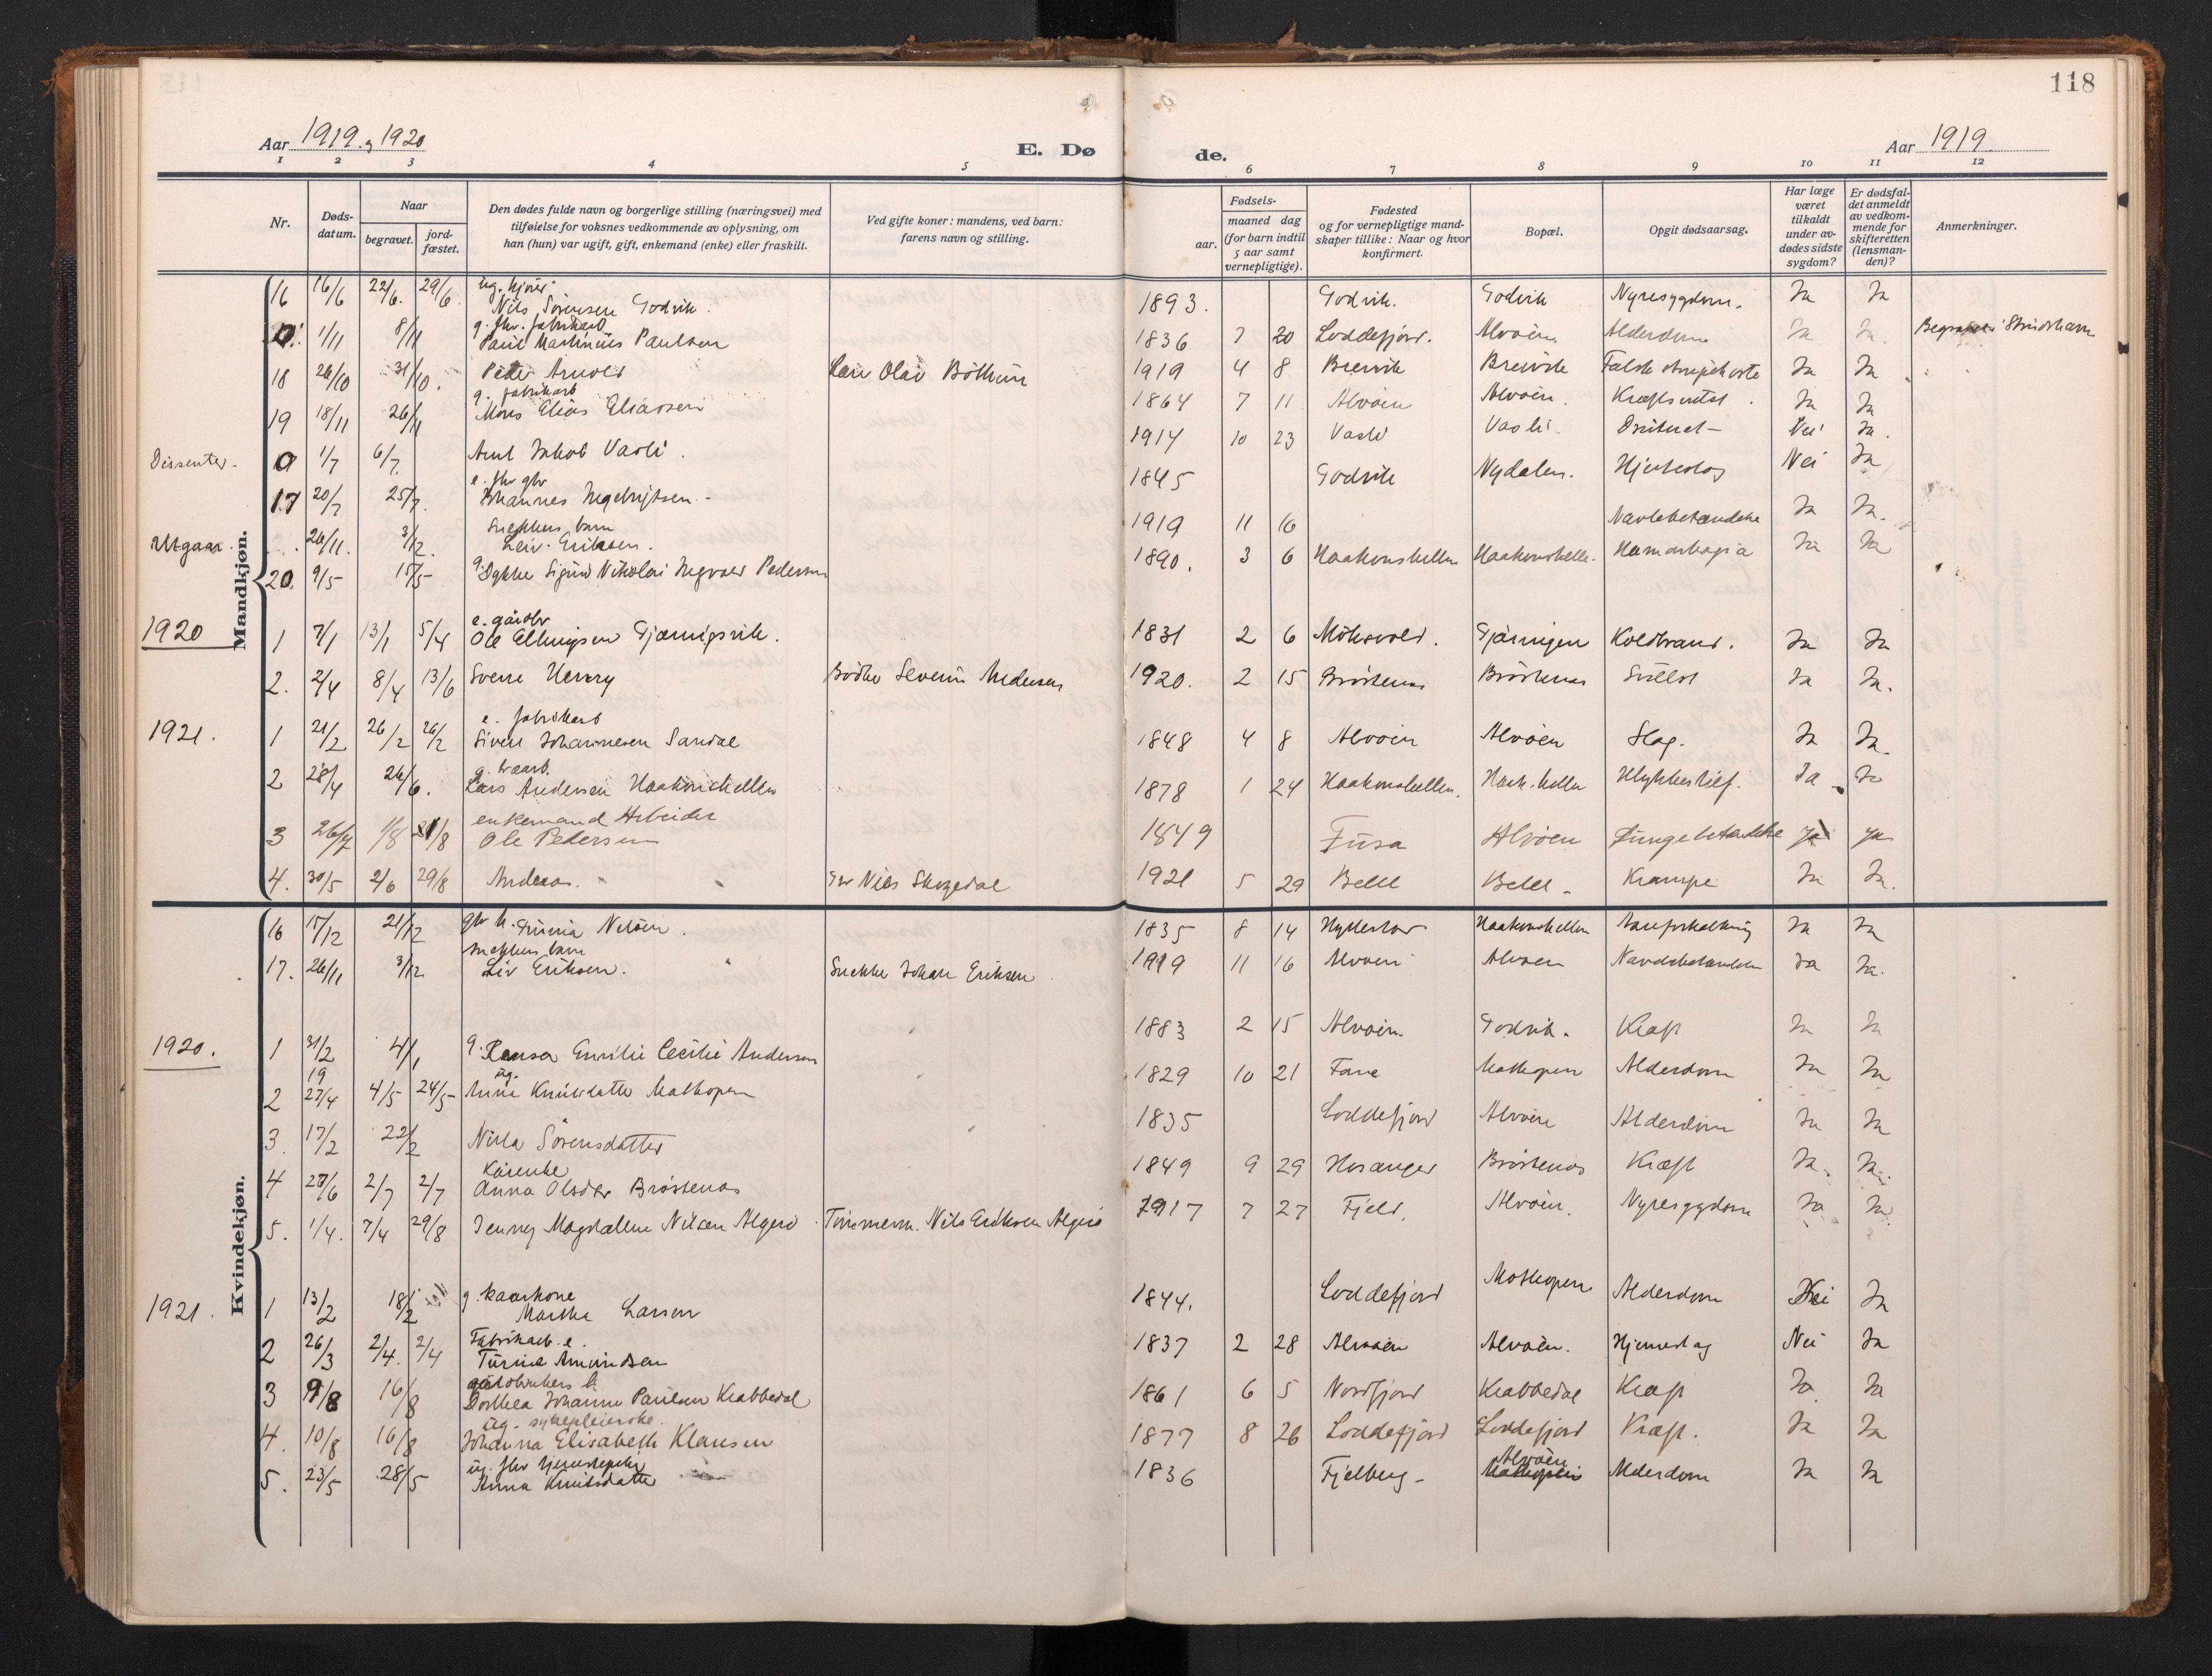 118
Aar 1919 og 1920
E. Dø de.
Aar 1919
1 2 3 4 5 6 7 8 9 10 11 12
Nr.
Døds-datum.
Naar
begravet.
jord-fæstet.
Den dødes fulde navn og borgerlige stilling (næringsvei) med tilføielse for voksnes vedkommende av oplysning, om han (hun) var ugift, gift, enkemand (enke) eller fraskilt.
Ved gifte koner: mandens, ved barn: farens navn og stilling.
Fødsels-
aar.
maaned dag
(for barn indtil 5 aar samt vernepligtige).
Fødested og for vernepligtige mandskaper tillike: Naar og hvor konfirmert.
Bopæl.
Opgit dødsaarsag.
Har læge været tilkaldt under avdødes sidste sygdom?
Er dødsfaldet anmeldt av vedkommende for skifteretten (lensmanden)?
Anmerkninger.
Mandkjøn.
16 16/6 22/6. 29/6 ug. Nils Sørensen Godvik. 1893. Godvik. Godvik Nyresygdom. Ja Ja
1/11 8/11 g. fhv. fabrikarb Paul Martinius Paulsen 1836 7 20 Loddefjord. Alvøen Alderdom Ja Ja.
18 26/10 31/10. Peder Arnold Olav 1919 4 8 Brevik Breivik Falsk Ja Ja
19 18/11 26/11 g. fabrikarb Mons Elias Eliassen 1864 7 11 Alvøen Alvøen. Ja Ja
Dissenter. 1/7 6/7. Jakob Vasli. 1914 10 23 Vasli Vasli Druknet Nei Ja.
17 20/7 25/7. e. fhv gbr Johannes Ingebrigtsen. 1845 Godvik Nydalen. Hjerteslag Nei Ja
Utgaar. 26/11. 3/12. Snekkers barn Leiv Eriksen. 1919 11 16 Navlebetændelse Ja Ja.
20. 9/5 15/5 g. Dykker Sigurd Nikolai Ingvald Pedersen 1890. 3 6 Haakonshellen Haakonshelle. Ja Ja
1920 1 7/1 13/1 5/4 e. gårdbr Ole Ellingsen Gjærnigsvik. 1831 2 6 Gjærnigen Koldbrand. Ja Ja
2. 2/4 8/4 13/6 Sverre Henry Bødker Severin Andersen 1920. 2 15 Brøstenas Brøstenas Ja Ja.
1921. 1 21/2 26/2 26/2 e. fabrikarb Sivert Johannesen Sandal 1848 4 8 Alvøen Alvøen Slag. Ja Ja.
2 28/4 26/6. g. Lars Andersen Haakonshellen 1878 1 24 Haakonshellen. Haak.hellen Ulykkestilf. Ja Ja
3 26/7 1/8 21/8 enkemand Arbeider Ole Pedersen 1849 Fusa Alvøen Lungebetændelse Ja Ja
4. 30/5 2/6 29/8 Andreas. Nils Skogedal 1921 5 29 Krampe Ja Ja.
Kvindekjøn.
16 17/12 21/12 gbr k. Nilsen. 1835 8 14 Haakonshellen Aareforkalkning Ja Ja
17. 26/11 3/12 Snekkers barn Liv Eriksen. Snekker Johan Eriksen 1919 11 16 Alvøen Alvøen Navlebetændelse Ja Ja.
1920. 1 31/2 19 4/1 g. Emilie Cecilie Andersen 1883 2 15 Alvøen Godvik. Kræft Ja Ja
2 27/4 4/5 24/5 ug. Anna Knudsdatter Mathopen 1829 10 21 Fane Mathopen Alderdom Ja Ja
3. 17/2 22/2 Nilla Sørensdatter 1835 Loddefjord Alvøen Alderdom Ja Ja
4 27/6 2/7 2/7 Kårenke Anna Olsdtr Brøstenas 1849 9 29 Hosanger Brøstenas Kræft Ja. Ja.
5. 1/4. 7/4 29/8 Jenny Magdalene Nilsen Algerø Tømmerm. Nils Eriksen Algerø 1917 7 27 Fjeld. Alvøen. Nyresygdom Ja Ja
1921. 1 13/2 18/2 g. kaarkone Martha Larsen 1844. Loddefjord Mathopen Alderdom Nei Ja
2 26/3 2/4. 2/4 Fabrikarb. e. Turine Amundsen 1837 2 28 Alvøen Alvøen. Hjerneslag Nei Ja
3 9/8 16/8 gårdbrukers k. Dorthea Johanne Paulsen Krabbedal 1861 6 5 Nordfjord Krabbedal Kræft Ja Ja
4. 10/8 16/8 ug. sykepleierske. Johanna Elisabeth Klausen 1877 8 26 Loddefjord Loddefjord Kræft. Ja Ja
5. 23/5 28/5 ug. fhv tjenestepike Anna Knutsdatter 1836 Fjelberg Alvøen Mathopen Alderdom Ja Ja